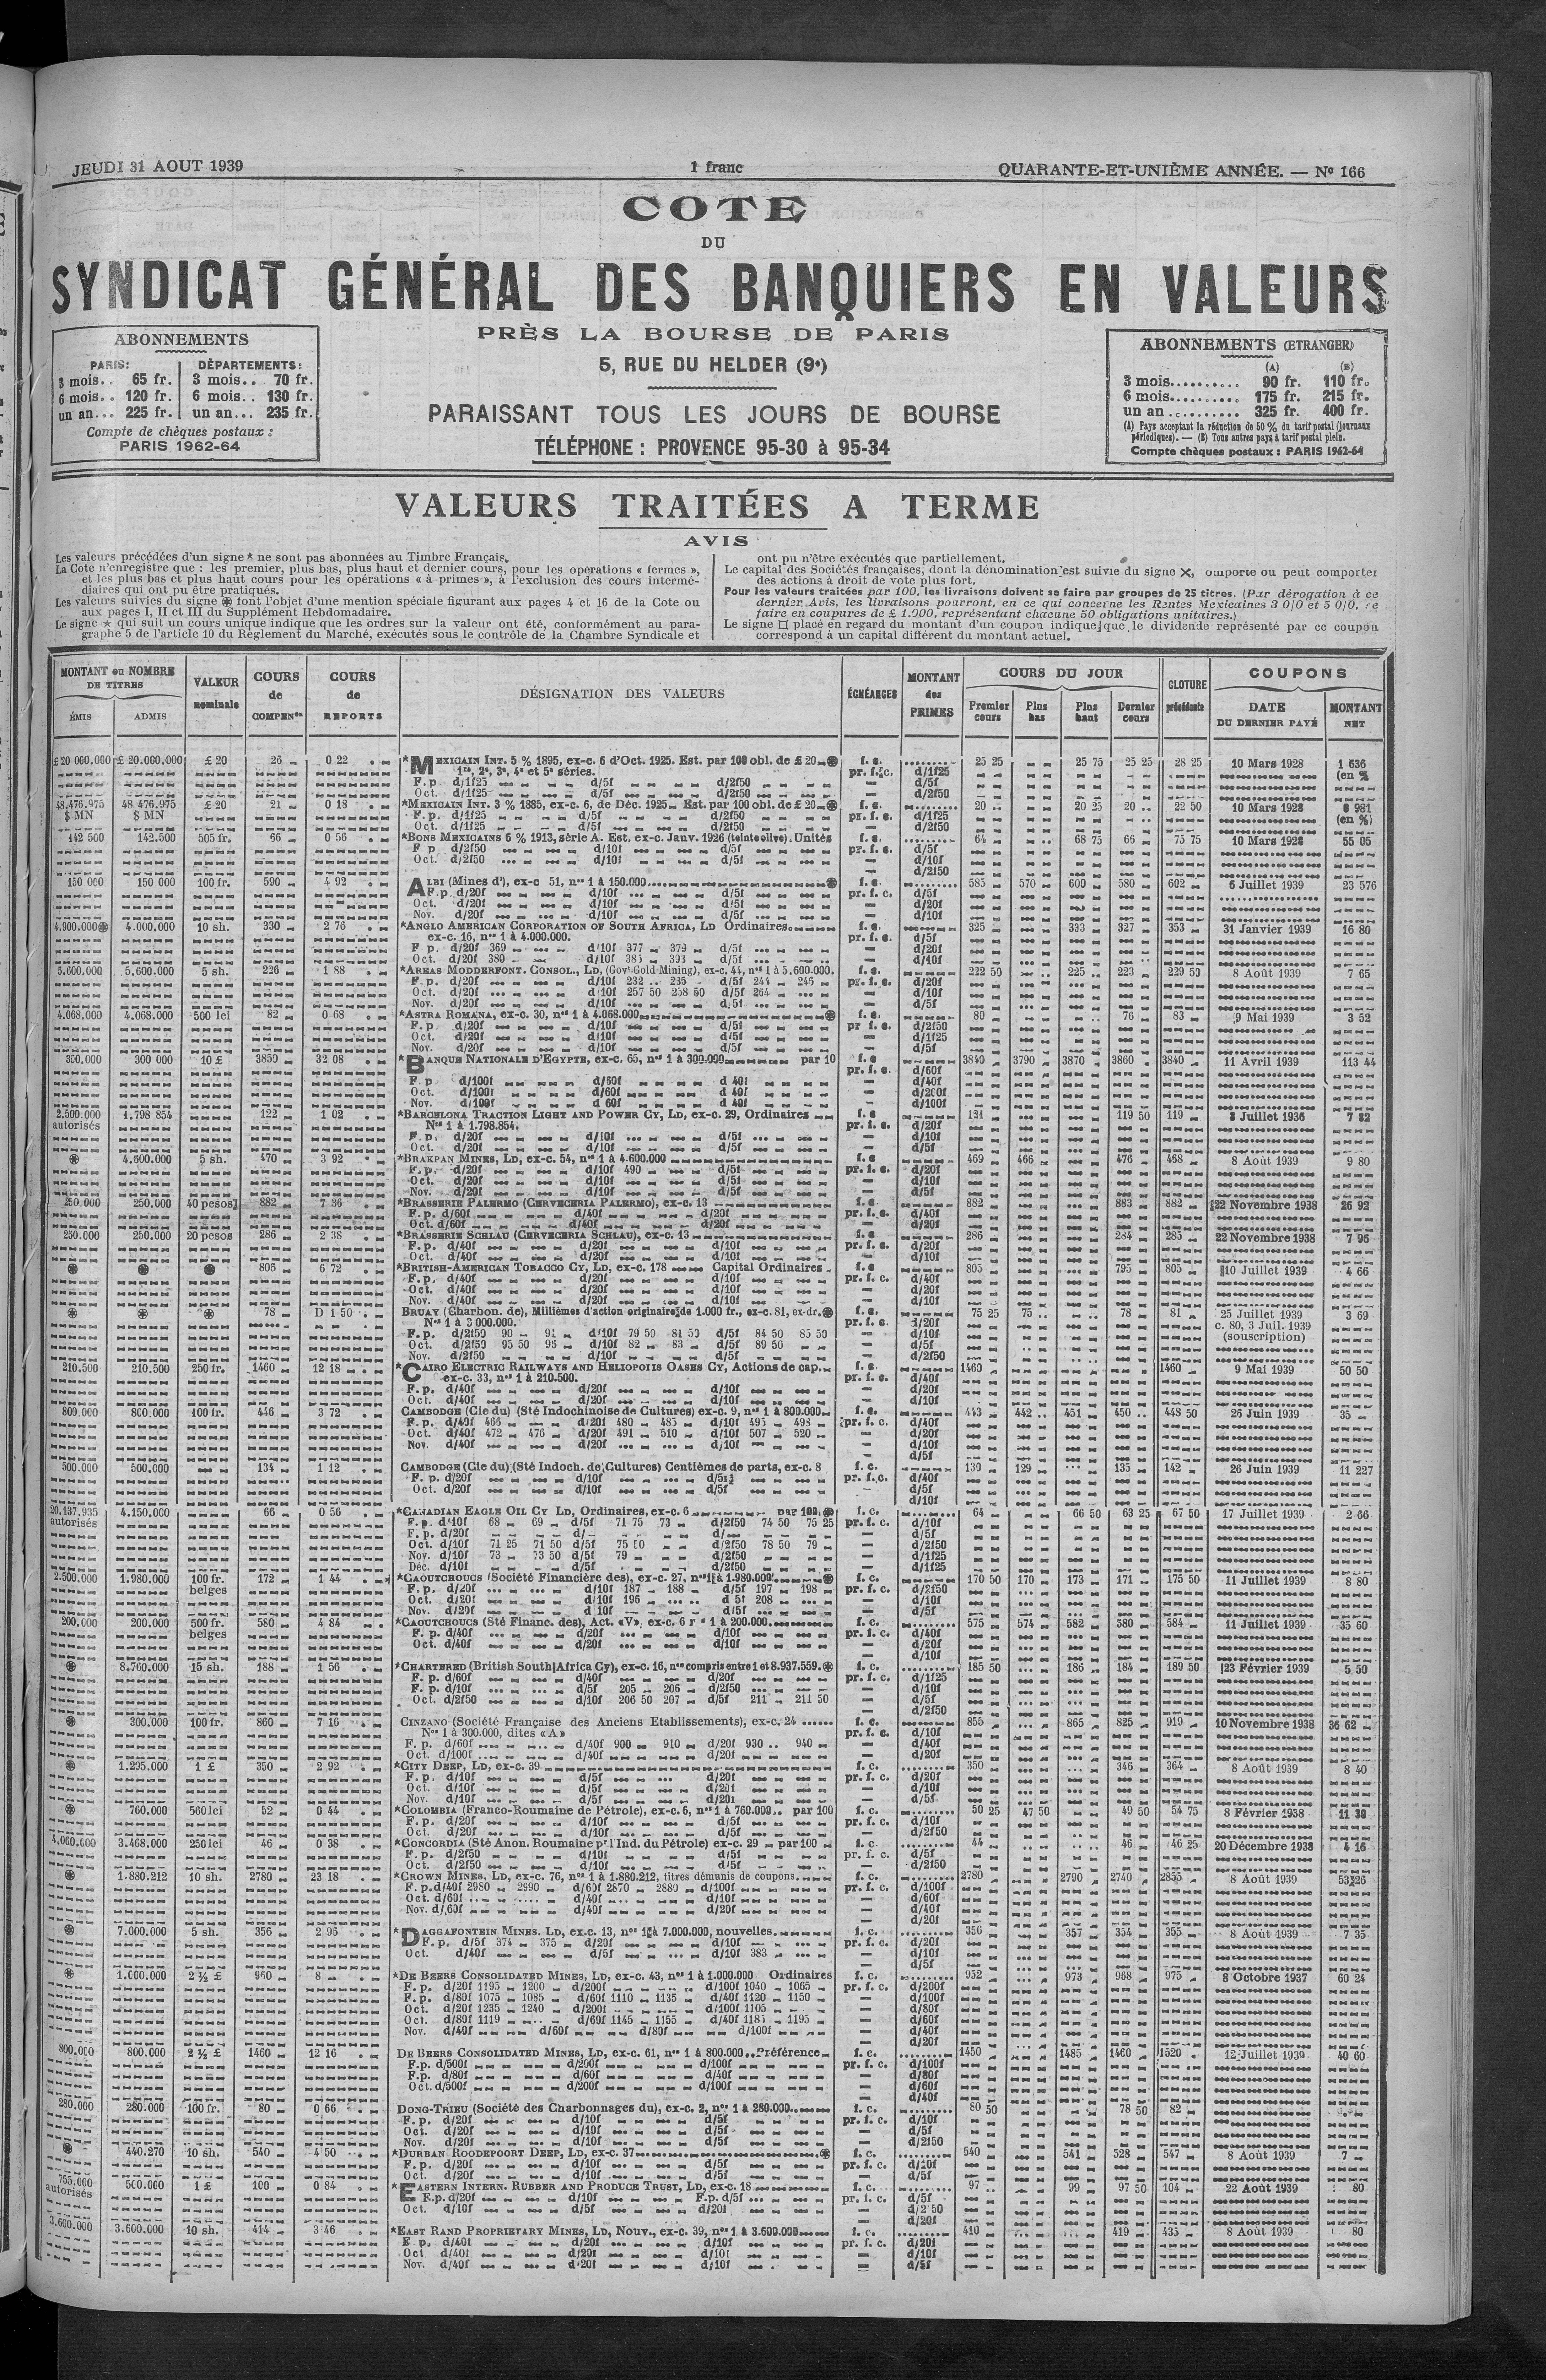 JEUDI 31 AOUT 1939
1 franc
QUARANTE-ET-UNIÈME ANNÉE. — No 166
COTE
DU
SYNDICAT GÉNÉRAL DES BANQUIERS EN VALEURS
PRÈS LA BOURSE DE PARIS
5, RUE DU HELDER (9e)
PARAISSANT TOUS LES JOURS DE BOURSE
TÉLÉPHONE : PROVENCE 95-30 à 95-34
ABONNEMENTS
PARIS: DÉPARTEMENTS:
3 mois.. 65 fr. 3 mois.. 70 fr.
6 mois.. 120 fr. 6 mois.. 130 fr.
un an... 225 fr. un an... 235 fr.
Compte de chèques postaux :
PARIS 1962-64
ABONNEMENTS (ETRANGER)
(A) (B)
3 mois.......... 90 fr. 110 fr.
6 mois.......... 175 fr. 215 fr.
un an .......... 325 fr. 400 fr.
(A) Pays acceptant la réduction de 50 % du tarif postal (journaux
périodiques). — (B) Tous autres pays à tarif postal plein.
Compte chèques postaux : PARIS 1962-64
VALEURS TRAITÉES A TERME
AVIS
Les valeurs précédées d'un signe * ne sont pas abonnées au Timbre Français.
La Cote n'enregistre que : les premier, plus bas, plus haut et dernier cours, pour les opérations « fermes »,
et les plus bas et plus haut cours pour les opérations « à primes », à l'exclusion des cours intermé-
diaires qui ont pu être pratiqués.
Les valeurs suivies du signe ❋ font l'objet d'une mention spéciale figurant aux pages 4 et 16 de la Cote ou
aux pages I, II et III du Supplément Hebdomadaire.
Le signe ★ qui suit un cours unique indique que les ordres sur la valeur ont été, conformément au para-
graphe 5 de l'article 10 du Règlement du Marché, exécutés sous le contrôle de la Chambre Syndicale et
ont pu n'être exécutés que partiellement.
Le capital des Sociétés françaises, dont la dénomination est suivie du signe ✕, omporte ou peut comporter
des actions à droit de vote plus fort.
Pour les valeurs traitées par 100, les livraisons doivent se faire par groupes de 25 titres. (Par dérogation à ce
dernier Avis, les livraisons pourront, en ce qui concerne les Rentes Mexicaines 3 0/0 et 5 0/0, se
faire en coupures de £ 1.000, représentant chacune 50 obligations unitaires.)
Le signe □ placé en regard du montant d'un coupon indique que le dividende représenté par ce coupon
correspond à un capital différent du montant actuel.
MONTANT ou NOMBRE DE TITRES
ÉMIS ADMIS
VALEUR nominale
COURS de COMPENon
COURS de REPORTS
DÉSIGNATION DES VALEURS
ÉCHÉANCES
MONTANT des PRIMES
COURS DU JOUR
Premier cours Plus bas Plus haut Dernier cours
CLOTURE précédente
COUPONS
DATE DU DERNIER PAYÉ
MONTANT NET
£ 20 000.000 £ 20.000.000 £ 20 26 0 22 *MEXICAIN INT. 5 % 1895, ex-c. 6 d'Oct. 1925. Est. par 100 obl. de £ 20 ❋ f. c. 25 25 25 75 25 25 28 25 10 Mars 1928 1 636
1re, 2e, 3e, 4e et 5e séries. pr. f. c. d/1f25 (en %
F. p. d/1f25 d/5f d/2f50 — d/5f
Oct. d/1f25 d/5f d/2f50 — d/2f50
48.476.975 48 476.975 £ 20 21 0 18 *MEXICAIN INT. 3 % 1885, ex-c. 6, de Déc. 1925 Est. par 100 obl. de £ 20 ❋ f. c. 20 .. 20 25 20 .. 22 50 10 Mars 1928 0 981
$ MN $ MN F. p. d/1f25 d/5f d/2f50 pr. f. c. d/1f25 (en %)
Oct. d/1f25 d/5f d/2f50 — d/2f50
142 500 142.500 505 fr. 66 0 56 *BONS MEXICAINS 6 % 1913, série A. Est. ex-c. Janv. 1926 (teinte olive). Unités f. c. 64 68 75 66 75 75 10 Mars 1928 55 05
F p d/2f50 d/10f d/5f pr. f. c. d/5f
Oct. d/2f50 d/10f d/5f — d/10f
— d/2f50
150 000 150 000 100 fr. 590 4 92 ALBI (Mines d'), ex-c 51, nos 1 à 150.000 ❋ f. c. 585 570 600 580 602 6 Juillet 1939 23 576
F. p. d/20f d/10f d/5f pr. f. c. d/5f
Oct. d/20f d/10f d/5f — d/20f
Nov. d/20f d/10f d/5f — d/10f
4.900.000❋ 4.000.000 10 sh. 330 2 76 *ANGLO AMERICAN CORPORATION OF SOUTH AFRICA, LD Ordinaires f. c. 325 333 327 353 31 Janvier 1939 16 80
ex-c. 16, nos 1 à 4.000.000. pr. f. c. d/5f
F p. d/20f 369 d/10f 377 379 d/5f — d/20f
Oct. d/20f 380 d/10f 385 393 d/5f — d/10f
5.600.000 5.600.000 5 sh. 226 1 88 *AREAS MODDERFONT. CONSOL., LD, (Govt Gold Mining), ex-c. 44, nos 1 à 5.600.000. f. c. 222 50 225 .. 223 229 50 8 Août 1939 7 65
F. p. d/20f d/10f 232 .. 235 d/5f 244 246 pr. f. c. d/20f
Oct. d/20f d/10f 257 50 258 50 d/5f 264 — d/10f
Nov. d/20f d/10f d/5f — d/5f
4.068.000 4.068.000 500 lei 82 0 68 *ASTRA ROMANA, ex-c. 30, nos 1 à 4.068.000 ❋ f. c. 80 76 83 9 Mai 1939 3 52
F. p. d/20f d/10f d/5f pr f. c. d/2f50
Oct. d/20f d/10f d/5f — d/1f25
Nov. d/20f d/10f d/5f — d/5f
300.000 300 000 10 £ 3850 32 08 *BANQUE NATIONALE D'EGYPTE, ex-c. 65, nos 1 à 300.000 par 10 f. c 3840 3790 3870 3860 3840 11 Avril 1939 113 44
pr. f. c. d/60f
F. p d/100f d/60f d 40f — d/40f
Oct. d/100f d/60f d 40f — d/200f
Nov. d/100f d 60f d 40f — d/100f
2.500.000 1.798 854 122 1 02 *BARCELONA TRACTION LIGHT AND POWER CY, LD, ex-c. 29, Ordinaires f. c 121 119 50 119 Juillet 1936 7 82
autorisés Nos 1 à 1.798.854. pr. f. c. d/20f
F. p. d/20f d/10f d/5f — d/10f
Oct. d/20f d/10f d/5f — d/5f
❋ 4.600.000 5 sh. 470 3 92 *BRAKPAN MINES, LD, ex-c. 54, nos 1 à 4.600.000 f. c 469 466 476 468 8 Août 1939 9 80
F. p. d/20f d/10f 490 d/5f pr. f. c. d/20f
Oct. d/20f d/10f d/5f — d/10f
Nov. d/20f d/10f d/5f — d/5f
250.000 250.000 40 pesos 882 7 36 *BRASSERIE PALERMO (CERVECERIA PALERMO), ex-c. 13 f. c. 882 883 882 22 Novembre 1938 26 92
F. p. d/60f d/40f d/20f pr. f. c. d/40f
Oct. d/60f d/40f d/20f — d/20f
250.000 250.000 20 pesos 286 2 38 *BRASSERIE SCHLAU (CERVECERIA SCHLAU), ex-c. 13 f. c 286 284 285 22 Novembre 1938 7 96
F. p. d/40f d/20f d/10f pr. f. c. d/20f
Oct. d/40f d/20f d/10f — d/10f
❋ ❋ ❋ 806 6 72 *BRITISH-AMERICAN TOBACCO CY, LD, ex-c. 178 Capital Ordinaires f. c 805 795 805 10 Juillet 1939 4 66
F. p. d/40f d/20f d/10f pr. f. c. d/40f
Oct. d/40f d/20f d/10f — d/20f
Nov. d/40f d/20f d/10f — d/10f
❋ ❋ ❋ 78 D 1 50 BRUAY (Charbon. de), Millièmes d'action originaire de 1.000 fr., ex-c. 81, ex-dr. ❋ f. c. 75 25 75 .. 78 81 25 Juillet 1939 3 69
Nos 1 à 3 000.000. pr. f. c. d/20f c. 80, 3 Juil. 1939
F. p. d/2f50 90 91 d/10f 79 50 81 50 d/5f 84 50 85 50 — d/10f (souscription)
Oct. d/2f50 95 50 96 d/10f 82 83 d/5f 89 50 — d/5f
Nov. d/2f50 d/10f d/5f — d/2f50
210.500 210.500 250 fr. 1460 12 18 *CAIRO ELECTRIC RAILWAYS AND HELIOPOLIS OASES CY, Actions de cap. f. c. 1460 1460 9 Mai 1939 50 50
ex-c. 33, nos 1 à 210.500. pr. f. c. d/40f
F. p. d/40f d/20f d/10f — d/20f
Oct. d/40f d/20f d/10f — d/10f
800.000 800.000 100 fr. 446 3 72 CAMBODGE (Cie du) (Sté Indochinoise de Cultures) ex-c. 9, nos 1 à 800.000 f. c. 443 442 .. 451 450 .. 448 50 26 Juin 1939 35
F. p. d/40f 466 d/20f 480 485 d/10f 495 498 pr. f. c. d/40f
Oct. d/40f 472 476 d/20f 491 510 d/10f 507 520 — d/20f
Nov. d/40f d/20f d/10f — d/10f
— d/5f
500.000 500.000 134 1 12 CAMBODGE (Cie du) (Sté Indoch. de Cultures) Centièmes de parts, ex-c. 8 f. c. 139 129 135 142 26 Juin 1939 11 227
F. p. d/20f d/10f d/5f pr. f. c. d/40f
Oct. d/20f d/10f d/5f — d/5f
d/10f
20.137.935 4.150.000 66 0 56 *CANADIAN EAGLE OIL CY LD, Ordinaires, ex-c. 6 par 100 ❋ f. c. 64 66 50 63 25 67 50 17 Juillet 1939 2 66
autorisés F. p. d/10f 68 69 d/5f 71 75 73 d/2f50 74 50 75 25 pr. f. c. d/10f
F. p. d/20f d/ d/ — d/5f
Oct. d/10f 71 25 71 50 d/5f 75 50 d/2f50 78 50 79 — d/2f50
Nov. d/10f 73 73 50 d/5f 79 d/2f50 — d/1f25
Déc. d/10f d/5f d/2f50 — d/1f25
2.500.000 1.980.000 100 fr. 172 1 44 *CAOUTCHOUCS (Société Financière des), ex-c. 27, nos 1 à 1.980.000 ❋ f. c. 170 50 170 173 171 175 50 11 Juillet 1939 8 80
belges F. p. d/20f d/10f 187 188 d/5f 197 198 pr. f. c. d/2f50
Oct. d/20f d/10f 196 d 5f 208 — d/10f
Nov. d/20f d 10f d/5f — d/5f
200.000 200.000 500 fr. 580 4 84 *CAOUTCHOUCS (Sté Financ. des), Act. «V», ex-c. 6 1 à 200.000 f. c. 575 574 582 580 584 11 Juillet 1939 35 60
belges F. p. d/40f d/20f d/10f pr. f. c. d/40f
Oct. d/40f d/20f d/10f — d/20f
— d/10f
❋ 8.760.000 15 sh. 188 1 56 *CHARTERED (British South Africa Cy), ex-c. 16, nos compris entre 1 et 8.937.559. ❋ f. c. 185 50 186 184 189 50 23 Février 1939 5 50
F. p. d/60f d/40f d/20f pr. f. c. d/1f25
F. p. d/10f d/5f 205 206 d/2f50 — d/10f
Oct. d/2f50 d/10f 206 50 207 d/5f 211 211 50 — d/5f
— d/2f50
❋ 300.000 100 fr. 860 7 16 CINZANO (Société Française des Anciens Etablissements), ex-c. 24 f. c. 855 865 825 919 10 Novembre 1938 36 62
Nos 1 à 300.000, dites «A» pr. f. c. d/10f
F. p. d/60f d/40f 900 910 d/20f 930 .. 940 — d/40f
Oct. d/100f d/40f d/20f — d/20f
❋ 1.295.000 1 £ 350 2 92 *CITY DEEP, LD, ex-c. 39 f. c. 350 346 364 8 Août 1939 8 40
F. p. d/10f d/5f d/20f pr. f. c. d/20f
Oct. d/10f d/5f d/20f — d/10f
Nov. d/10f d/5f d/20f — d/5f
❋ 760.000 560 lei 52 0 44 *COLOMBIA (Franco-Roumaine de Pétrole), ex-c. 6, nos 1 à 760.000.. par 100 f. c. 50 25 47 50 49 50 54 75 8 Février 1938 11 30
F. p. d/20f d/10f d/5f pr. f. c. d/10f
Oct. d/20f d/10f d/5f — d/2f50
4.060.000 3.468.000 250 lei 46 0 38 *CONCORDIA (Sté Anon. Roumaine pr l'Ind. du Pétrole) ex-c. 29 par 100 f. c. 44 46 46 25 20 Décembre 1938 4 16
F. p. d/2f50 d/10f d/5f pr. f. c. d/5f
Oct. d/2f50 d/10f d/5f — d/2f50
❋ 1.880.212 10 sh. 2780 23 18 *CROWN MINES, LD, ex-c. 76, nos 1 à 1.880.212, titres démunis de coupons f. c. 2780 2790 2740 2855 8 Août 1939 53 26
F. p. d/40f 2980 2990 d/60f 2870 2880 d/100f pr. f. c. d/100f
Oct. d/60f d/40f d/10f — d/60f
Nov. d/60f d/40f d/20f — d/40f
— d/20f
❋ 7.000.000 5 sh. 356 2 96 *DAGGAFONTEIN MINES, LD, ex.c. 13, nos 1 à 7.000.000, nouvelles f. c. 356 357 354 355 8 Août 1939 7 35
F. p. d/5f 374 375 d/20f d/10f pr. f. c. d/20f
Oct. d/40f d/5f d/10f 383 — d/10f
— d/5f
❋ 1.000.000 2 ½ £ 960 8 *DE BEERS CONSOLIDATED MINES, LD, ex-c. 43, nos 1 à 1.000.000 Ordinaires f. c. 952 973 968 975 8 Octobre 1937 60 24
F. p. d/20f 1195 1200 d/200f d/100f 1040 1065 pr. f. c. d/200f
F. p. d/80f 1075 1085 d/60f 1110 1135 d/40f 1120 1150 — d/100f
Oct. d/20f 1235 1240 d/200f d/100f 1105 — d/80f
Oct. d/80f 1119 d/60f 1145 1155 d/40f 1185 1195 — d/60f
Nov. d/40f d/60f d/80f d/100f — d/40f
— d/20f
800.000 800.000 2 ½ £ 1460 12 16 DE BEERS CONSOLIDATED MINES, LD, ex-c. 61, nos 1 à 800.000.. Préférence f. c. 1450 1485 1460 1520 12 Juillet 1939 40 60
F. p. d/500f d/200f d/100f pr. f. c. d/100f
F. p. d/80f d/60f d/40f — d/80f
Oct. d/500f d/200f d/100f — d/60f
— d/40f
280.000 280.000 100 fr. 80 0 66 DONG-TRIEU (Société des Charbonnages du), ex-c. 2, nos 1 à 280.000 f. c. 80 50 78 50 82
F. p. d/20f d/10f d/5f pr. f. c. d/10f
Oct. d/20f d/10f d/5f — d/5f
Nov. d/20f d/10f d/5f — d/2f50
❋ 440.270 10 sh. 540 4 50 *DURBAN ROODEPOORT DEEP, LD, ex-c. 37 ❋ f. c. 540 541 528 547 8 Août 1939 7
F. p. d/20f d/10f d/5f pr. f. c. d/10f
Oct. d/20f d/10f d/5f — d/5f
755.000 500.000 1 £ 100 0 84 *EASTERN INTERN. RUBBER AND PRODUCE TRUST, LD, ex-c. 18 f. c. 97 .. 99 97 50 104 22 Août 1939 80
autorisés F. p. d/20f d/10f F. p. d/5f pr. f. c. d/5f
Oct. d/10f d/5f d/20f — d/2 50
— d/20f
3.600.000 3.600.000 10 sh. 414 3 46 *EAST RAND PROPRIETARY MINES, LD, Nouv., ex-c. 39, nos 1 à 3.600.000 f. c. 410 419 435 8 Août 1939 80
F p. d/40f d/20f d/10f pr. f. c. d/20f
Oct. d/40f d/20f d/10f — d/10f
Nov. d/40f d/20f d/10f — d/5f